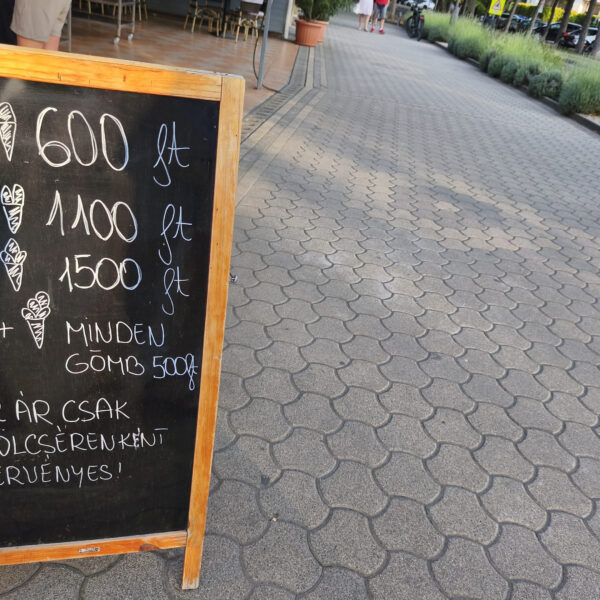 600 ft
1100 ft
1500 ft
+ MINDEN
GÖMB 500ft
ÁR CSAK
ÖLCSÉRENKÉNT
ERVÉNYES!